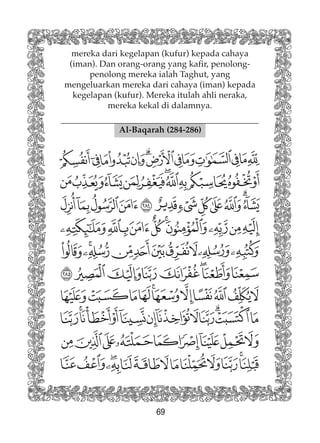 mereka dari kegelapan (kufur) kepada cahaya
(iman). Dan orang-orang yang kafir, penolong-
penolong mereka ialah Taghut, yang
mengeluarkan mereka dari cahaya (iman) kepada
kegelapan (kufur). Mereka itulah ahli neraka,
mereka kekal di dalamnya.
Al-Baqarah (284-286)
لِّلَّهِ مَا فِي السَّمَاوَاتِ وَمَا فِي الْأَرْضِ ۗ وَإِن تُبْدُوا مَا فِي أَنفُسِكُمْ
أَوْ تُخْفُوهُ يُحَاسِبْكُم بِهِ اللَّهُ ۖ فَيَغْفِرُ لِمَن يَشَاءُ وَيُعَذِّبُ مَن
يَشَاءُ ۗ وَاللَّهُ عَلَىٰ كُلِّ شَيْءٍ قَدِيرٌ ﴿٢٨٤﴾ آمَنَ الرَّسُولُ بِمَا أُنزِلَ
إِلَيْهِ مِن رَّبِّهِ وَالْمُؤْمِنُونَ ۚ كُلٌّ آمَنَ بِاللَّهِ وَمَلَائِكَتِهِ
وَكُتُبِهِ وَرُسُلِهِ لَا نُفَرِّقُ بَيْنَ أَحَدٍ مِّن رُّسُلِهِ ۚ وَقَالُوا
سَمِعْنَا وَأَطَعْنَا ۖ غُفْرَانَكَ رَبَّنَا وَإِلَيْكَ الْمَصِيرُ ﴿٢٨٥﴾
لَا يُكَلِّفُ اللَّهُ نَفْسًا إِلَّا وُسْعَهَا ۚ لَهَا مَا كَسَبَتْ وَعَلَيْهَا
مَا اكْتَسَبَتْ ۗ رَبَّنَا لَا تُؤَاخِذْنَا إِن نَّسِينَا أَوْ أَخْطَأْنَا ۚ رَبَّنَا
وَلَا تَحْمِلْ عَلَيْنَا إِصْرًا كَمَا حَمَلْتَهُ عَلَى الَّذِينَ مِن
قَبْلِنَا ۚ رَبَّنَا وَلَا تُحَمِّلْنَا مَا لَا طَاقَةَ لَنَا بِهِ ۖ وَاعْفُ عَنَّا
69